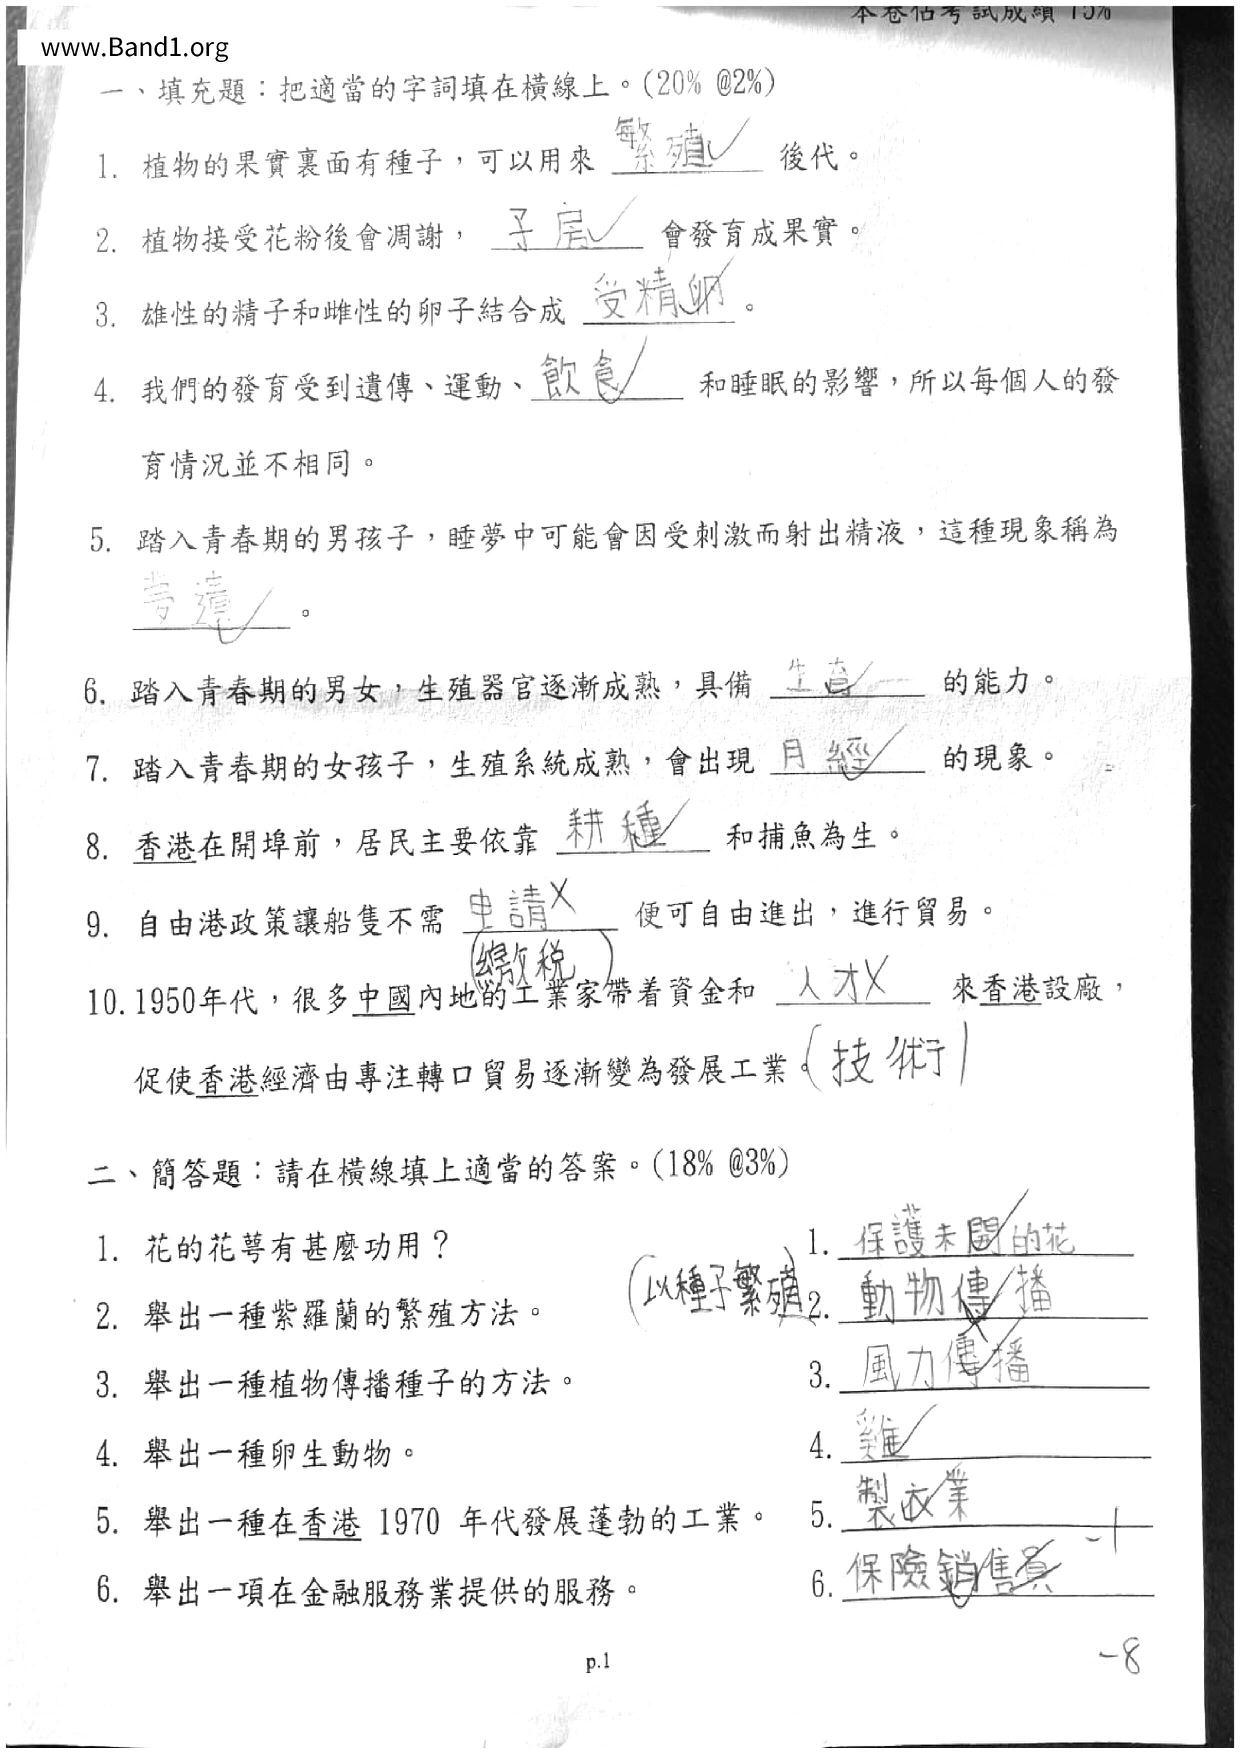 本卷佔考試成績 15%
www.Band1.org
一、填充題：把適當的字詞填在橫線上。(20% @2%)
1. 植物的果實裏面有種子，可以用來 繁殖 後代。
2. 植物接受花粉後會凋謝， 子房 會發育成果實。
3. 雄性的精子和雌性的卵子結合成 受精卵 。
4. 我們的發育受到遺傳、運動、 飲食 和睡眠的影響，所以每個人的發
育情況並不相同。
5. 踏入青春期的男孩子，睡夢中可能會因受刺激而射出精液，這種現象稱為
夢遺 。
6. 踏入青春期的男女，生殖器官逐漸成熟，具備 生育 的能力。
7. 踏入青春期的女孩子，生殖系統成熟，會出現 月經 的現象。
8. 香港在開埠前，居民主要依靠 耕種 和捕魚為生。
9. 自由港政策讓船隻不需 申請 便可自由進出，進行貿易。
(繳稅)
10. 1950年代，很多中國內地的工業家帶着資金和 人才 來香港設廠，
促使香港經濟由專注轉口貿易逐漸變為發展工業。(技術)
二、簡答題：請在橫線填上適當的答案。(18% @3%)
1. 花的花萼有甚麼功用？ 1. 保護未開的花
2. 舉出一種紫羅蘭的繁殖方法。 (以種子繁殖) 2. 動物傳播
3. 舉出一種植物傳播種子的方法。 3. 風力傳播
4. 舉出一種卵生動物。 4. 雞
5. 舉出一種在香港 1970 年代發展蓬勃的工業。 5. 製衣業
6. 舉出一項在金融服務業提供的服務。 6. 保險銷售員 -1
p.1
-8